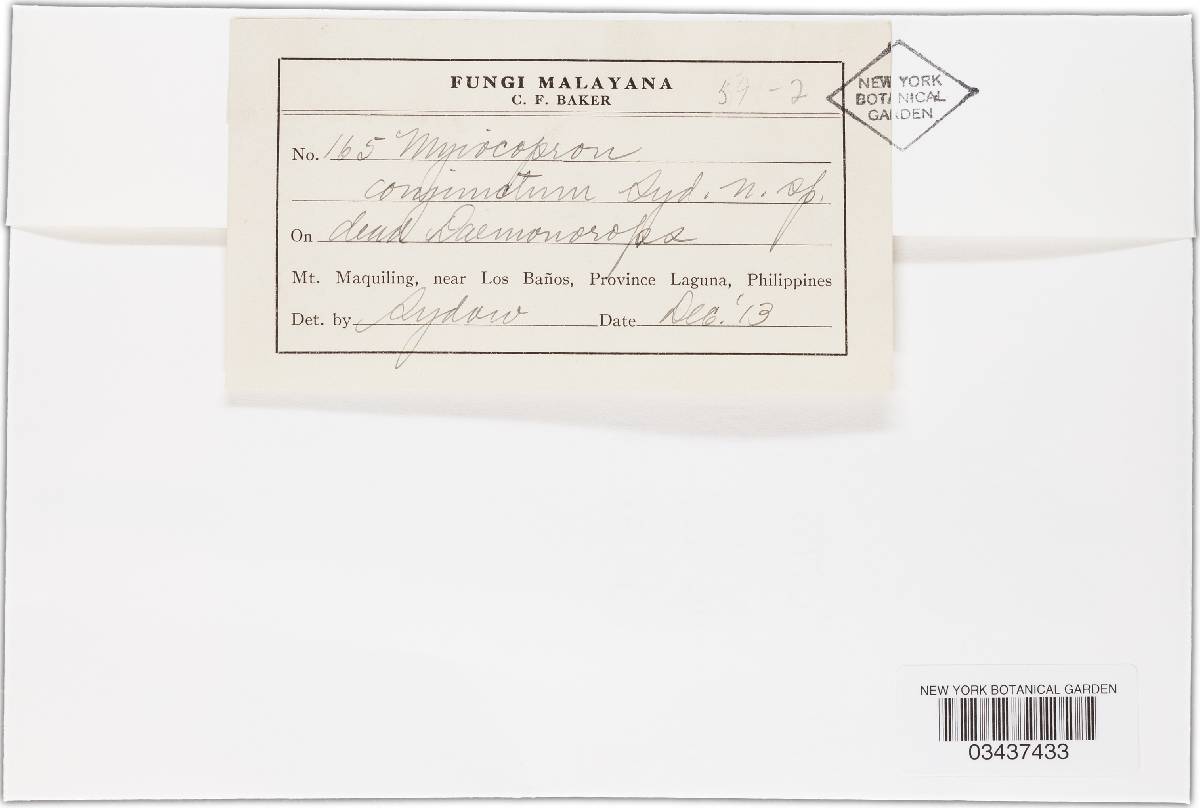 FUNGI MALAYANA
C. F. BAKER
59-2
NEW YORK
BOTANICAL
GARDEN
No. 165 Myiocopron
conjunctum Syd. n. sp.
On dead Daemonorops
Mt. Maquiling, near Los Baños, Province Laguna, Philippines
Det. by Sydow Date Dec. '13
NEW YORK BOTANICAL GARDEN
03437433